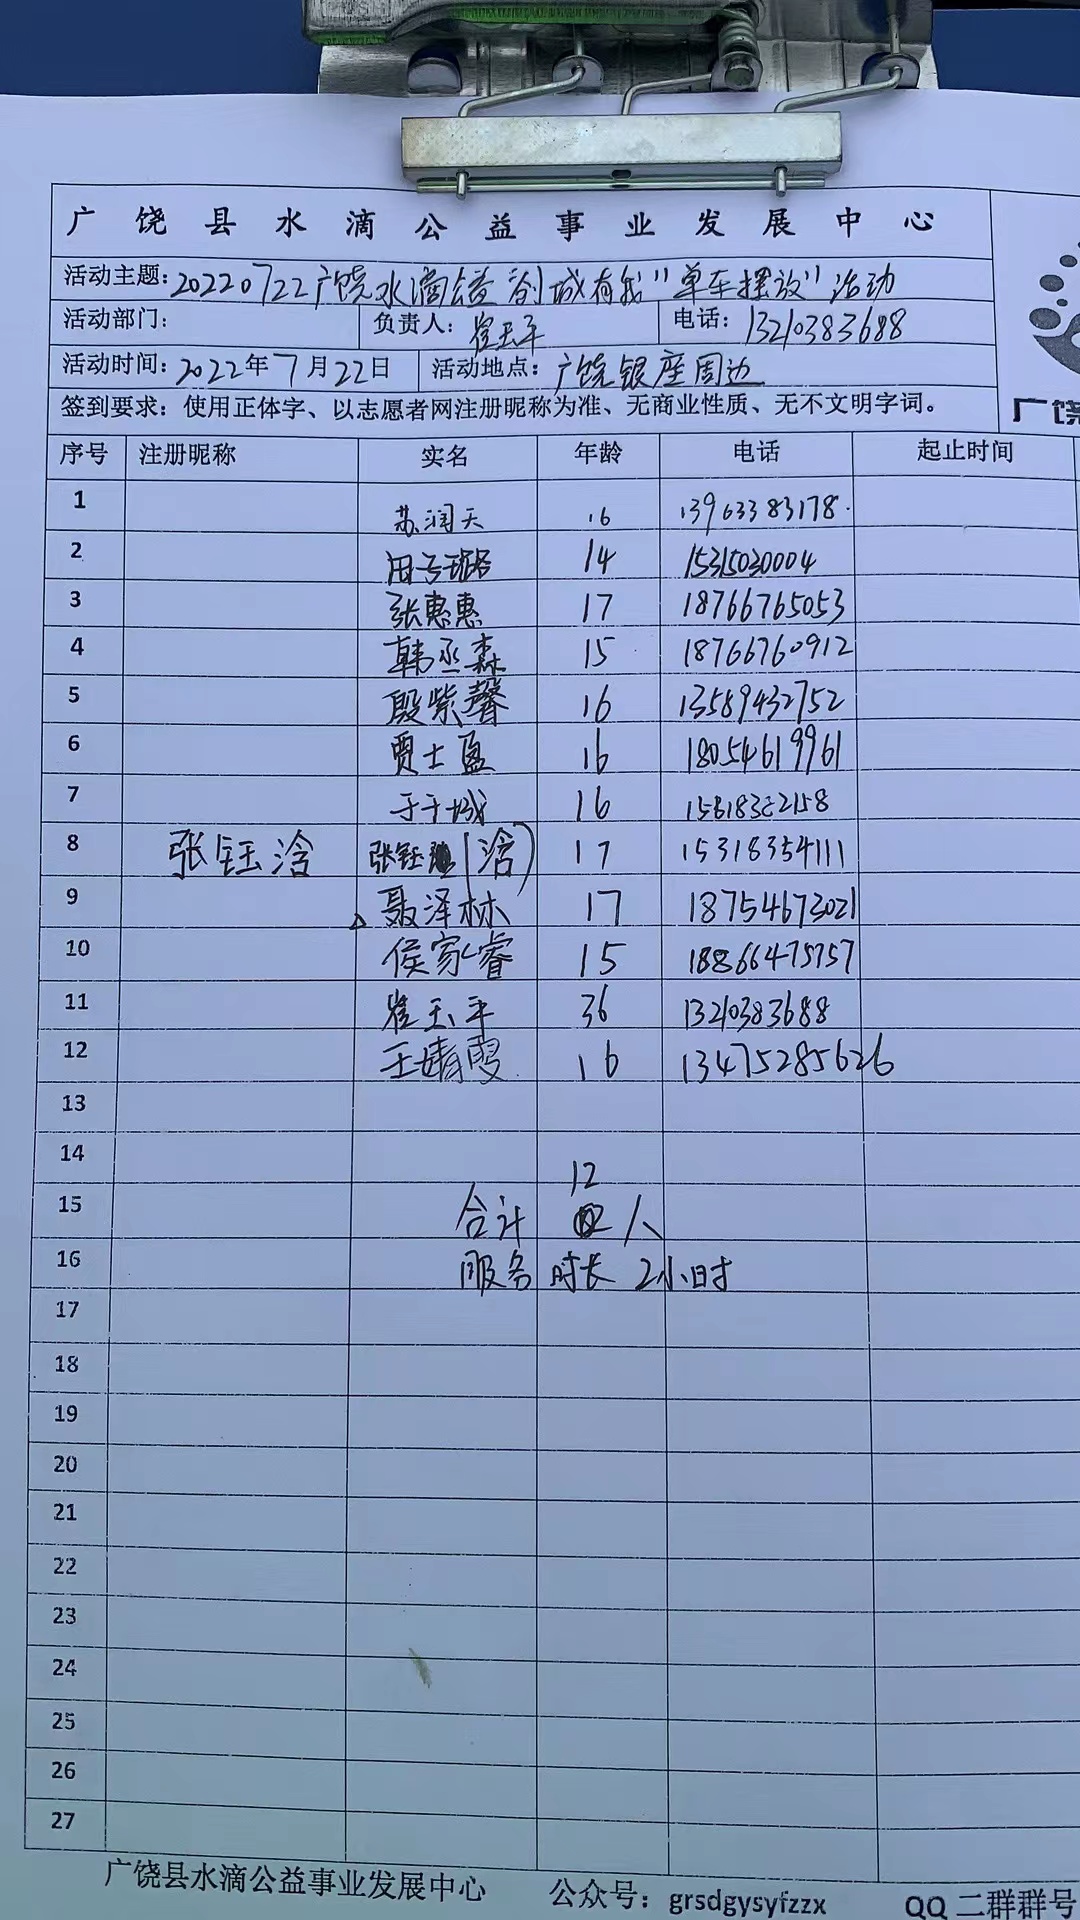 广饶县水滴公益事业发展中心
活动主题：20220722广饶水滴公益创城有我"单车摆放"活动
活动部门： 负责人：崔玉平 电话：13210383688
活动时间：2022年7月22日 活动地点：广饶银座周边
签到要求：使用正体字、以志愿者网注册昵称为准、无商业性质、无不文明字词。
广饶
序号 注册昵称 实名 年龄 电话 起止时间
1 苏润天 16 13963383178
2 14 15315030004
3 张惠惠 17 18766765053
4 韩丞森 15 18766760912
5 殷紫馨 16 13589432752
6 贾士盈 16 18054619961
7 于千城 16
8 张钰浛 张钰(浛) 17 15318354111
9 聂泽林 17 18754673021
10 侯家睿 15 18866475757
11 崔玉平 36 13210383688
12 王婧雯 16 13475285626
13
14
12
15 合计 人
16 服务时长 2小时
17
18
19
20
21
22
23
24
25
26
27
广饶县水滴公益事业发展中心 公众号：grsdgysyfzzx QQ二群群号